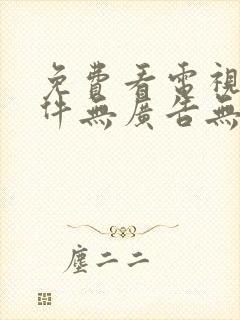 免費看電視
件無廣告無
塵二二